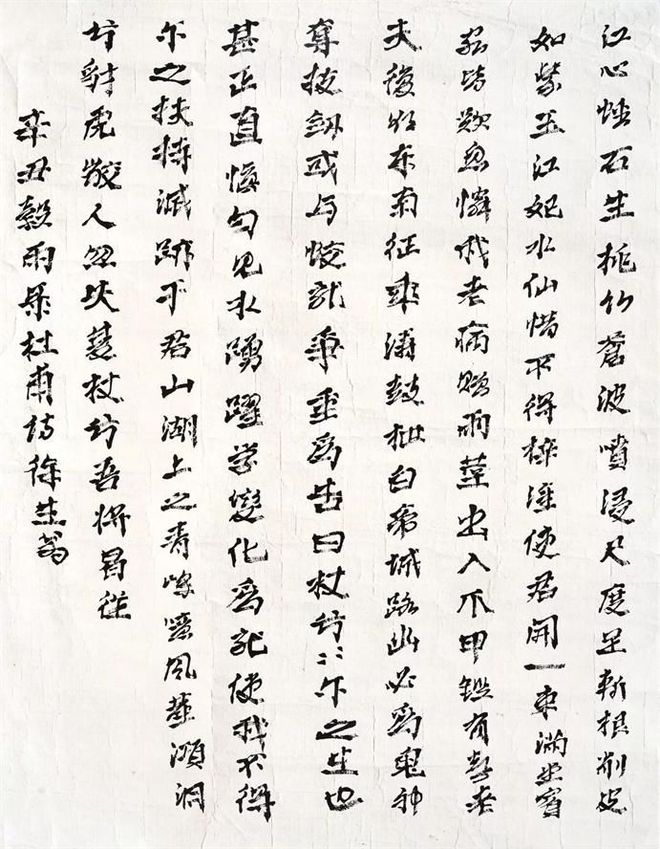 江心蟠石生桃竹蒼波噴浸尺度足斬根削皮
如紫玉江妃水仙惜不得梓潼使君開一束滿堂賓
客皆歎息憐我老病贈兩莖出入爪甲鏗有聲老
夫復欲東南征乘濤鼓枻白帝城路幽必為鬼神
奪拔劍或与蛟龍爭重為告曰杖兮〻〻尔之生也
甚正直慎勿見水踴躍学變化為龍使我不得
尔之扶持滅跡于君山湖上之青峰噫風塵澒洞
兮豺虎齩人忽失雙杖兮吾將曷從
辛丑穀雨录杜甫詩徐生翁